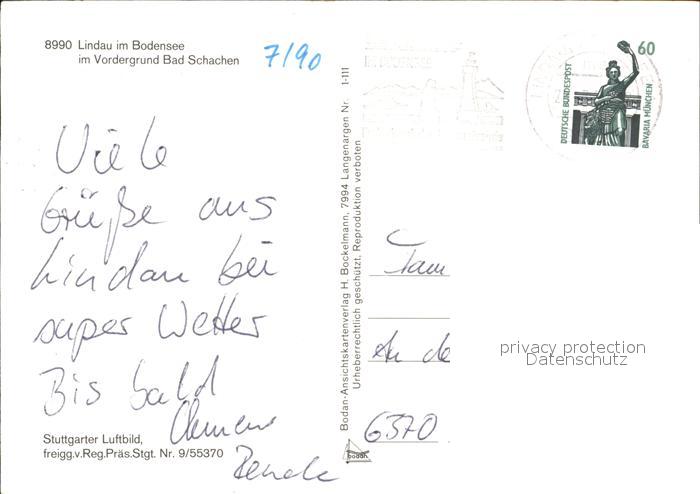 8990 Lindau im Bodensee
im Vordergrund Bad Schachen
7/90
Viele
Grüße aus
Lindau bei
super Wetter
Bis bald
Clemens
Renate
Stuttgarter Luftbild,
freigg.v.Reg.Präs.Stgt. Nr. 9/55370
Bodan-Ansichtskartenverlag H. Bockelmann, 7994 Langenargen Nr. 1-111
Urheberrechtlich geschützt, Reproduktion verboten
bodan
IM BODENSEE
60
DEUTSCHE BUNDESPOST
BAVARIA MÜNCHEN
Fam
An de
6370
privacy protection
Datenschutz